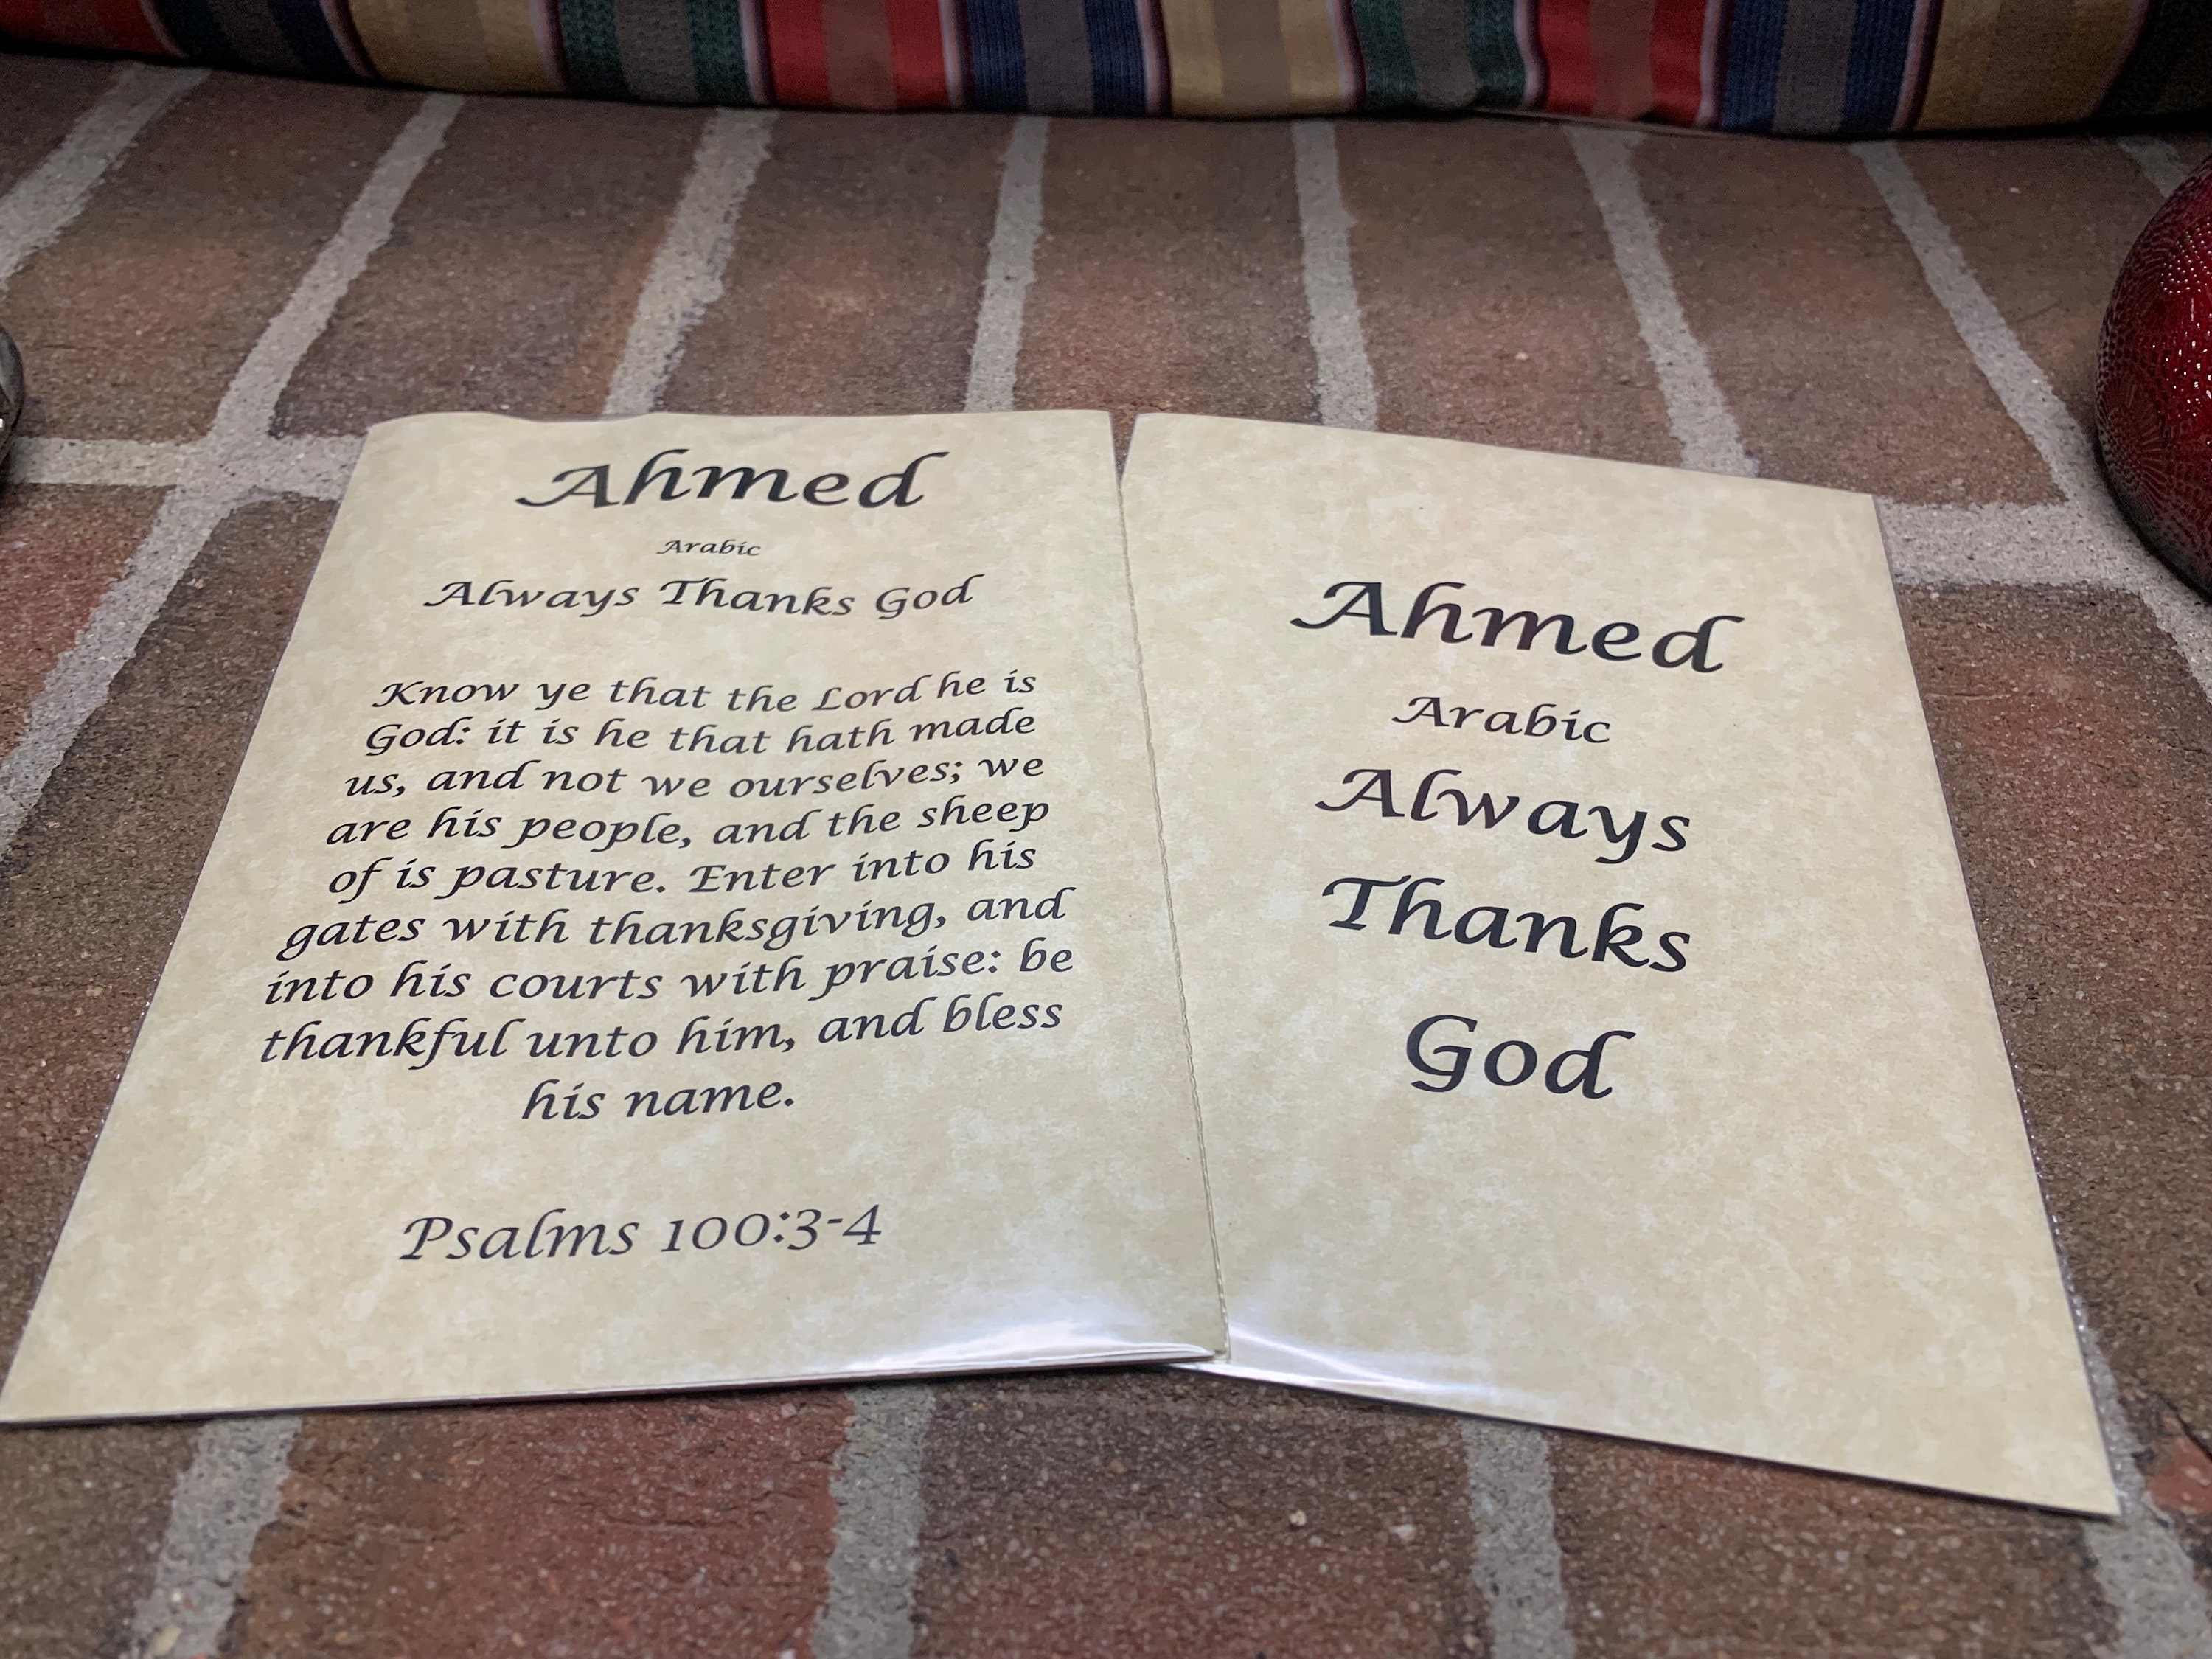 Ahmed
Arabic
Always Thanks God
Know ye that the Lord he is
God: it is he that hath made
us, and not we ourselves; we
are his people, and the sheep
of is pasture. Enter into his
gates with thanksgiving, and
into his courts with praise: be
thankful unto him, and bless
his name.
Psalms 100:3-4
Ahmed
Arabic
Always
Thanks
God